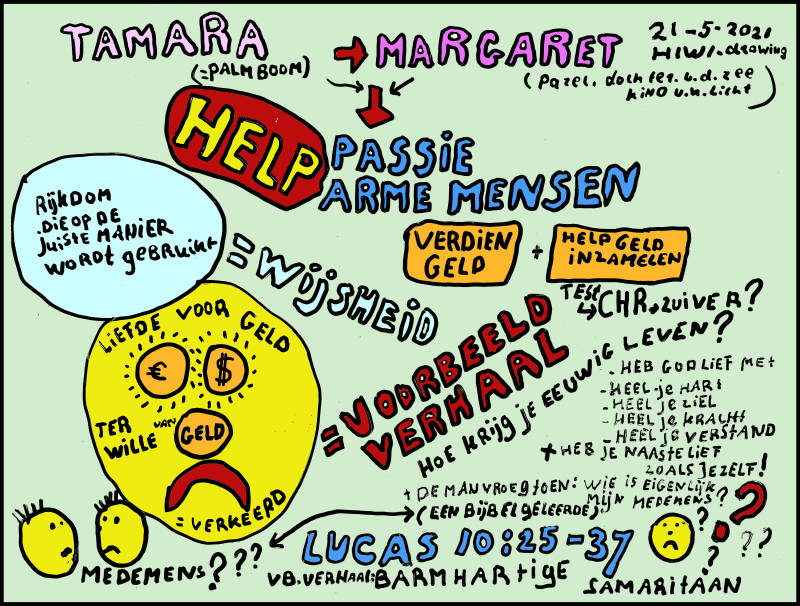 TAMARA → MARGARET
(=PALMBOOM)
21-5-2021
HIWI.drawing
(Parel. dochter.v.d.zee
KIND v.h.licht)
HELP
PASSIE
ARME MENSEN
RijKDOM
.DiE OP DE
JuiSTE MANIER
WORDT gEBRuiKt
= WijSHEiD
VERDIEN
GELD
+
HELP GELD
iNZAMELEN
TEST
↳ CHR.→ZUiVER?
LiEFDE VOOR GELD
€ $
TER
WiLLE VAN GELD
= VERKEERD
= VOORBEELD
VERHAAL
HOE KRijg jE EEUWig LEVEN?
. HEB GOD LiEF MET
- HEEL jE HART
- HEEL jE ZiEL
- HEEL jE KRACHT
- HEEL jE VERSTAND
+ HEB jE NAASTE LiEF
ZOALS jEZELF!
+ DE MAN VROEg TOEN: WiE iS EIGENLijK
MijN MEDEMENS?
(EEN BijBELgELEERDE)
MEDEMENS???
LUCAS 10:25-37
VB.VERHAAL: BARMHARTigE
SAMARiTAAN
? ? ? ??